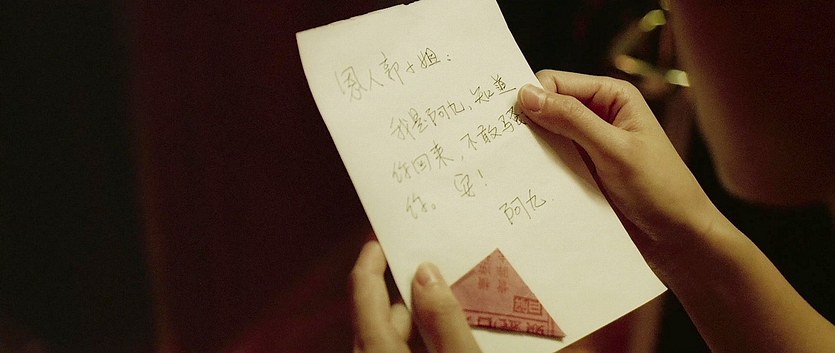 恩人郭小姐：
我是阿九，知道
你回来，不敢骚
你。安！
阿九